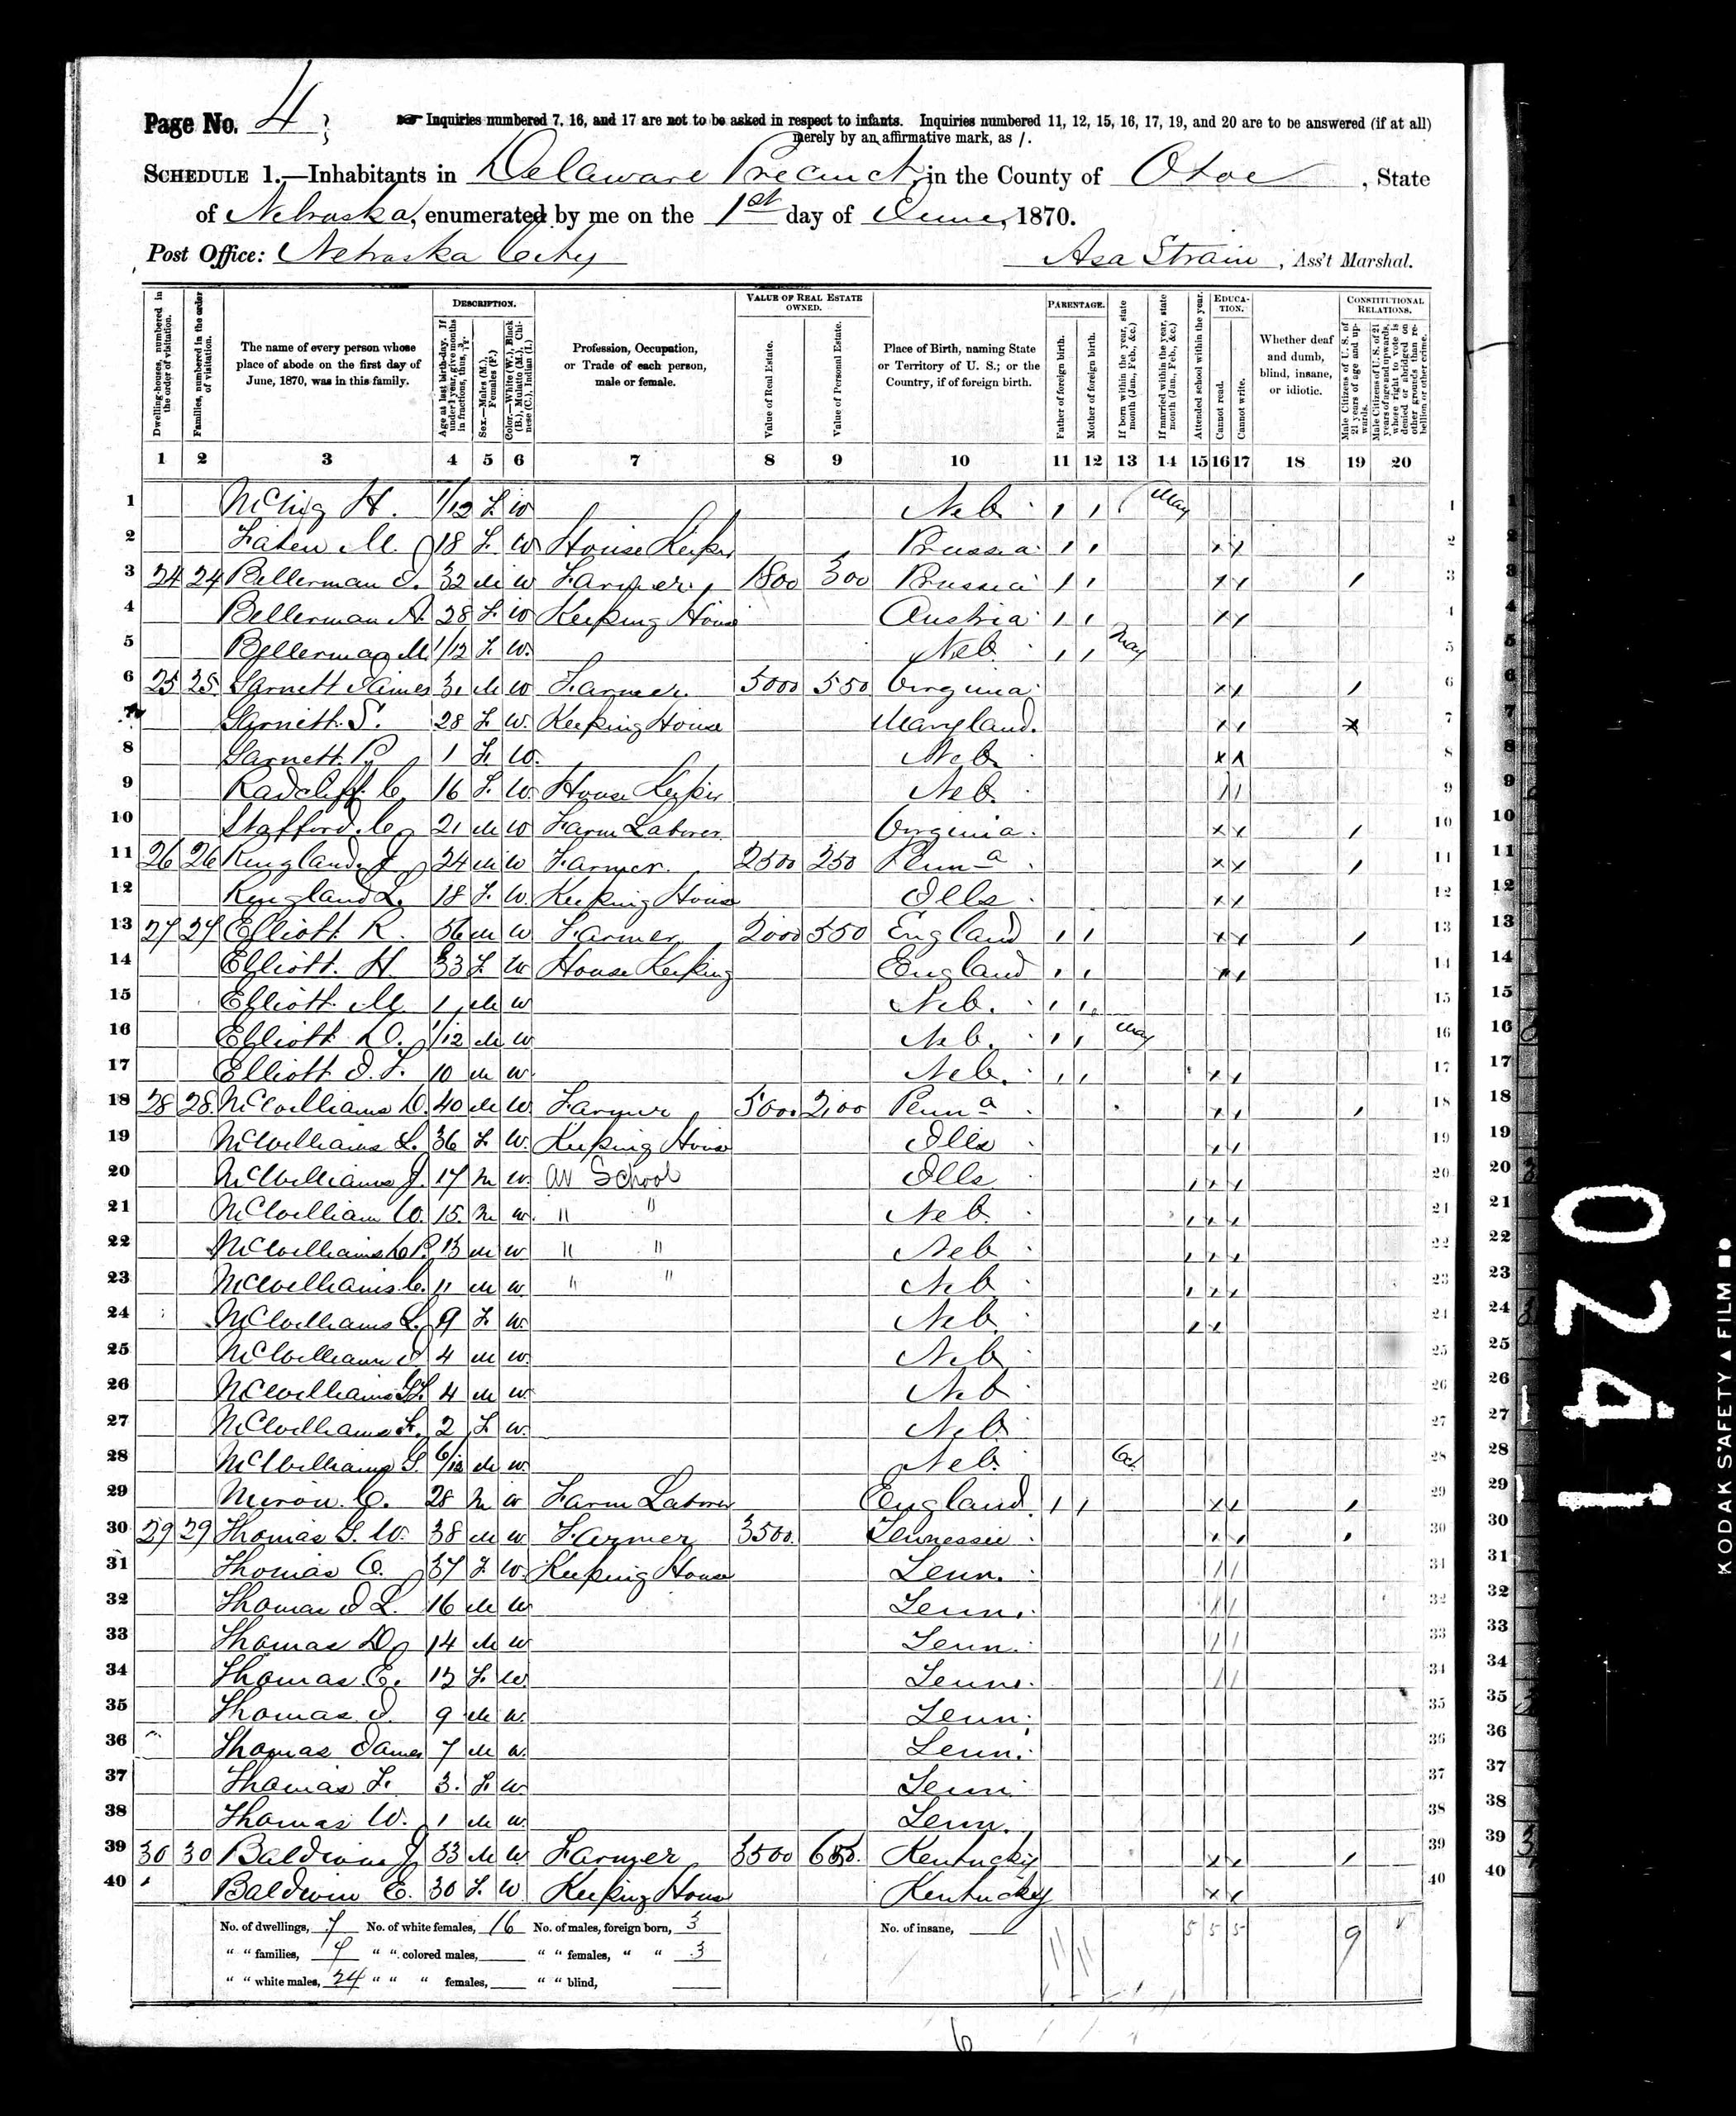 Page No. 4
☞ Inquiries numbered 7, 16, and 17 are not to be asked in respect to infants. Inquiries numbered 11, 12, 15, 16, 17, 19, and 20 are to be answered (if at all)
merely by an affirmative mark, as /.
SCHEDULE 1.—Inhabitants in Delaware Precinct, in the County of Otoe, State
of Nebraska, enumerated by me on the 1st day of June, 1870.
Post Office: Nebraska City Asa Strain, Ass't Marshal.
DESCRIPTION. VALUE OF REAL ESTATE OWNED. PARENTAGE. EDUCATION. CONSTITUTIONAL RELATIONS.
Dwelling-houses, numbered in the order of visitation.
Families, numbered in the order of visitation.
The name of every person whose place of abode on the first day of June, 1870, was in this family.
Age at last birth-day. If under 1 year, give months in fractions, thus, 3/12.
Sex.—Males (M.), Females (F.)
Color.—White (W.), Black (B.), Mulatto (M.), Chinese (C.), Indian (I.)
Profession, Occupation, or Trade of each person, male or female.
Value of Real Estate.
Value of Personal Estate.
Place of Birth, naming State or Territory of U. S.; or the Country, if of foreign birth.
Father of foreign birth.
Mother of foreign birth.
If born within the year, state month (Jan., Feb., &c.)
If married within the year, state month (Jan., Feb., &c.)
Attended school within the year.
Cannot read.
Cannot write.
Whether deaf and dumb, blind, insane, or idiotic.
Male Citizens of U. S. of 21 years of age and upwards.
Male Citizens of U. S. of 21 years of age and upwards, whose right to vote is denied or abridged on other grounds than rebellion or other crime.
1 2 3 4 5 6 7 8 9 10 11 12 13 14 15 16 17 18 19 20
1 H. 1/12 F. W Neb / / May 1
2 M. 18 F. W House Keeper Prussia / / × / 2
3 24 24 Bellerman J. 32 M W Farmer 1800 300 Prussia / / × / / 3
4 Bellerman A. 28 F. W Keeping House Austria / / × / 4
5 Bellerman M. 1/12 F. W. Neb / / May 5
6 25 25 Garnett James 31 M W Farmer 5000 550 Virginia × / / 6
7 Garnett S. 28 F. W. Keeping House Maryland. × / × 7
8 Garnett 1 F. W. Neb × 8
9 Radcliff C 16 F. W. House Keeper Neb. / / 9
10 Stafford C 21 M W Farm Laborer Virginia. × × / 10
11 26 26 Ringland J 24 M W Farmer. 2500 250 Penn a × / / 11
12 Ringland L. 18 F. W. Keeping House Ills × / 12
13 27 27 Elliott R. 36 M W Farmer 2000 550 England / / × × / 13
14 Elliott H. 33 F. W House Keeping England / / × / 14
15 Elliott M 1 M W Neb. / / 15
16 Elliott D. 1/12 M W Neb. / / May 16
17 Elliott J. F. 10 M W. Neb. / / × / 17
18 28 28 McWilliams D. 40 M W. Farmer 5000 2,00 Penn a × / / 18
19 McWilliams L. 36 F. W. Keeping House Ills × / 19
20 McWilliams J. 17 M W. At School Ills / × / 20
21 McWilliam W. 15. M W. " " Neb / × / 21
22 McWilliams 13 M W " " Neb / × / 22
23 McWilliams C. 11 M W. " " Neb / × / 23
24 McWilliams L. 9 F. W. Neb / × 24
25 McWilliams J 4 M W. Neb 25
26 McWilliams 4 M W. Neb 26
27 McWilliams F. 2 F. W. Neb 27
28 McWilliams S. 6/12 M W. Neb 28
29 C. 28 M W Farm Laborer England / / × / / 29
30 29 29 Thomas G. W. 38 M W Farmer 3500. Tennessee × / / 30
31 Thomas C. 37 F. W. Keeping House Tenn. / / 31
32 Thomas J L. 16 M W Tenn. / / 32
33 Thomas D 14 M W Tenn. / / 33
34 Thomas E. 12 F. W. Tenn. / / 34
35 Thomas J. 9 M W. Tenn. 35
36 Thomas James 7 M W. Tenn. 36
37 Thomas F. 3. F. W. Tenn. 37
38 Thomas W. 1 M W. Tenn. 38
39 30 30 Baldwin J 33 M W Farmer 3500 Kentucky × / / 39
40 Baldwin E. 30 F. W Keeping House Kentucky × / 40
No. of dwellings, 7 No. of white females, 16 No. of males, foreign born, 3 No. of insane,
" " families, 7 " " colored males, " " females, " " 3 5 5 5 9
" " white males, 24 " " " females, " " blind,
6
0241
KODAK SAFETY ▲ FILM